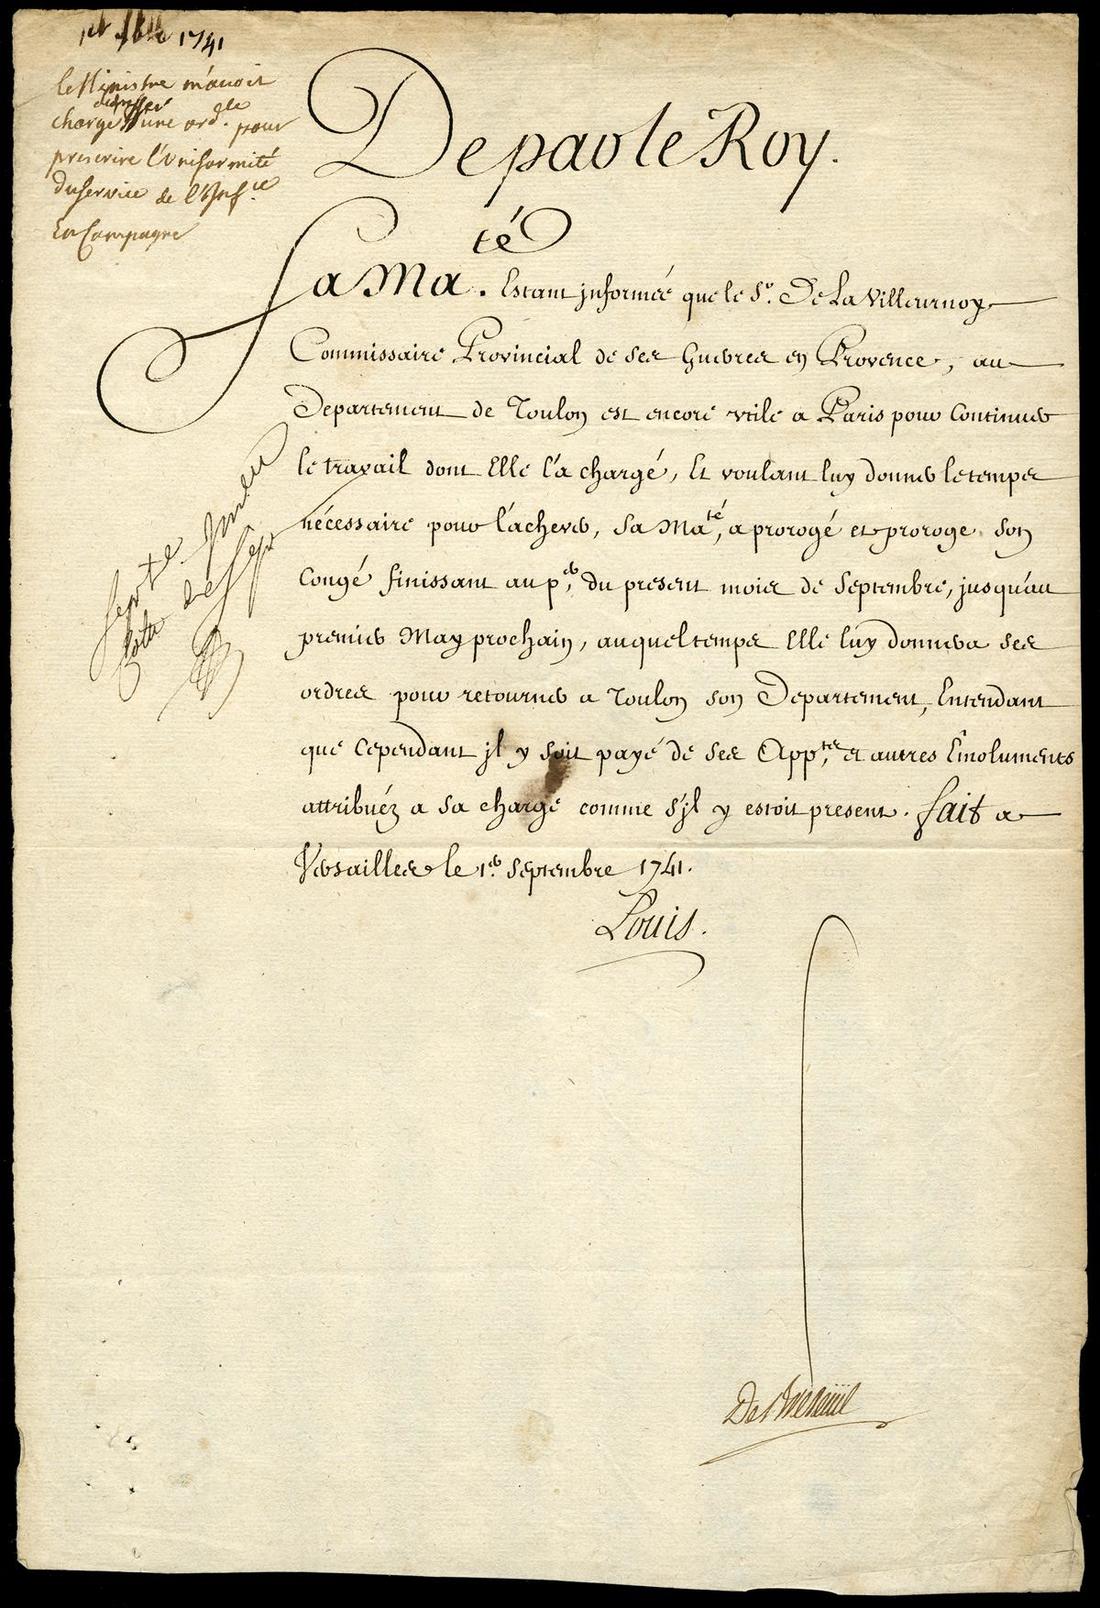 1er 7bre 1741
le Ministre m'avoit
chargé dresser une ord.ce pour
prescrire l'Uniformité
du service de l'Inf.ie
En Campagne
De par le Roy.
Sa Ma.té Estant jnformée que le S.r De La Villeurnoy
Commissaire Provincial de ses Guerres en Provence, au
Departement de Toulon est encore vtile a Paris pour Continuer
le travail dont Elle l'a chargé, Et voulant luy donner le temps
nécessaire pour l'achever, Sa Ma.té, a prorogé et proroge son
Congé finissant au p.er, du present mois de Septembre, jusqu'au
premier May prochain, auquel temps Elle luy donnera ses
ordres pour retourner a Toulon son Departement, Entendant
que Cependant jl y soit payé de ses App.ts, et autres Emoluments
attribuéz a Sa charge comme s'jl y estoit present. fait a
Versailles le 1.er Septembre 1741.
Louis.
De Breteüil